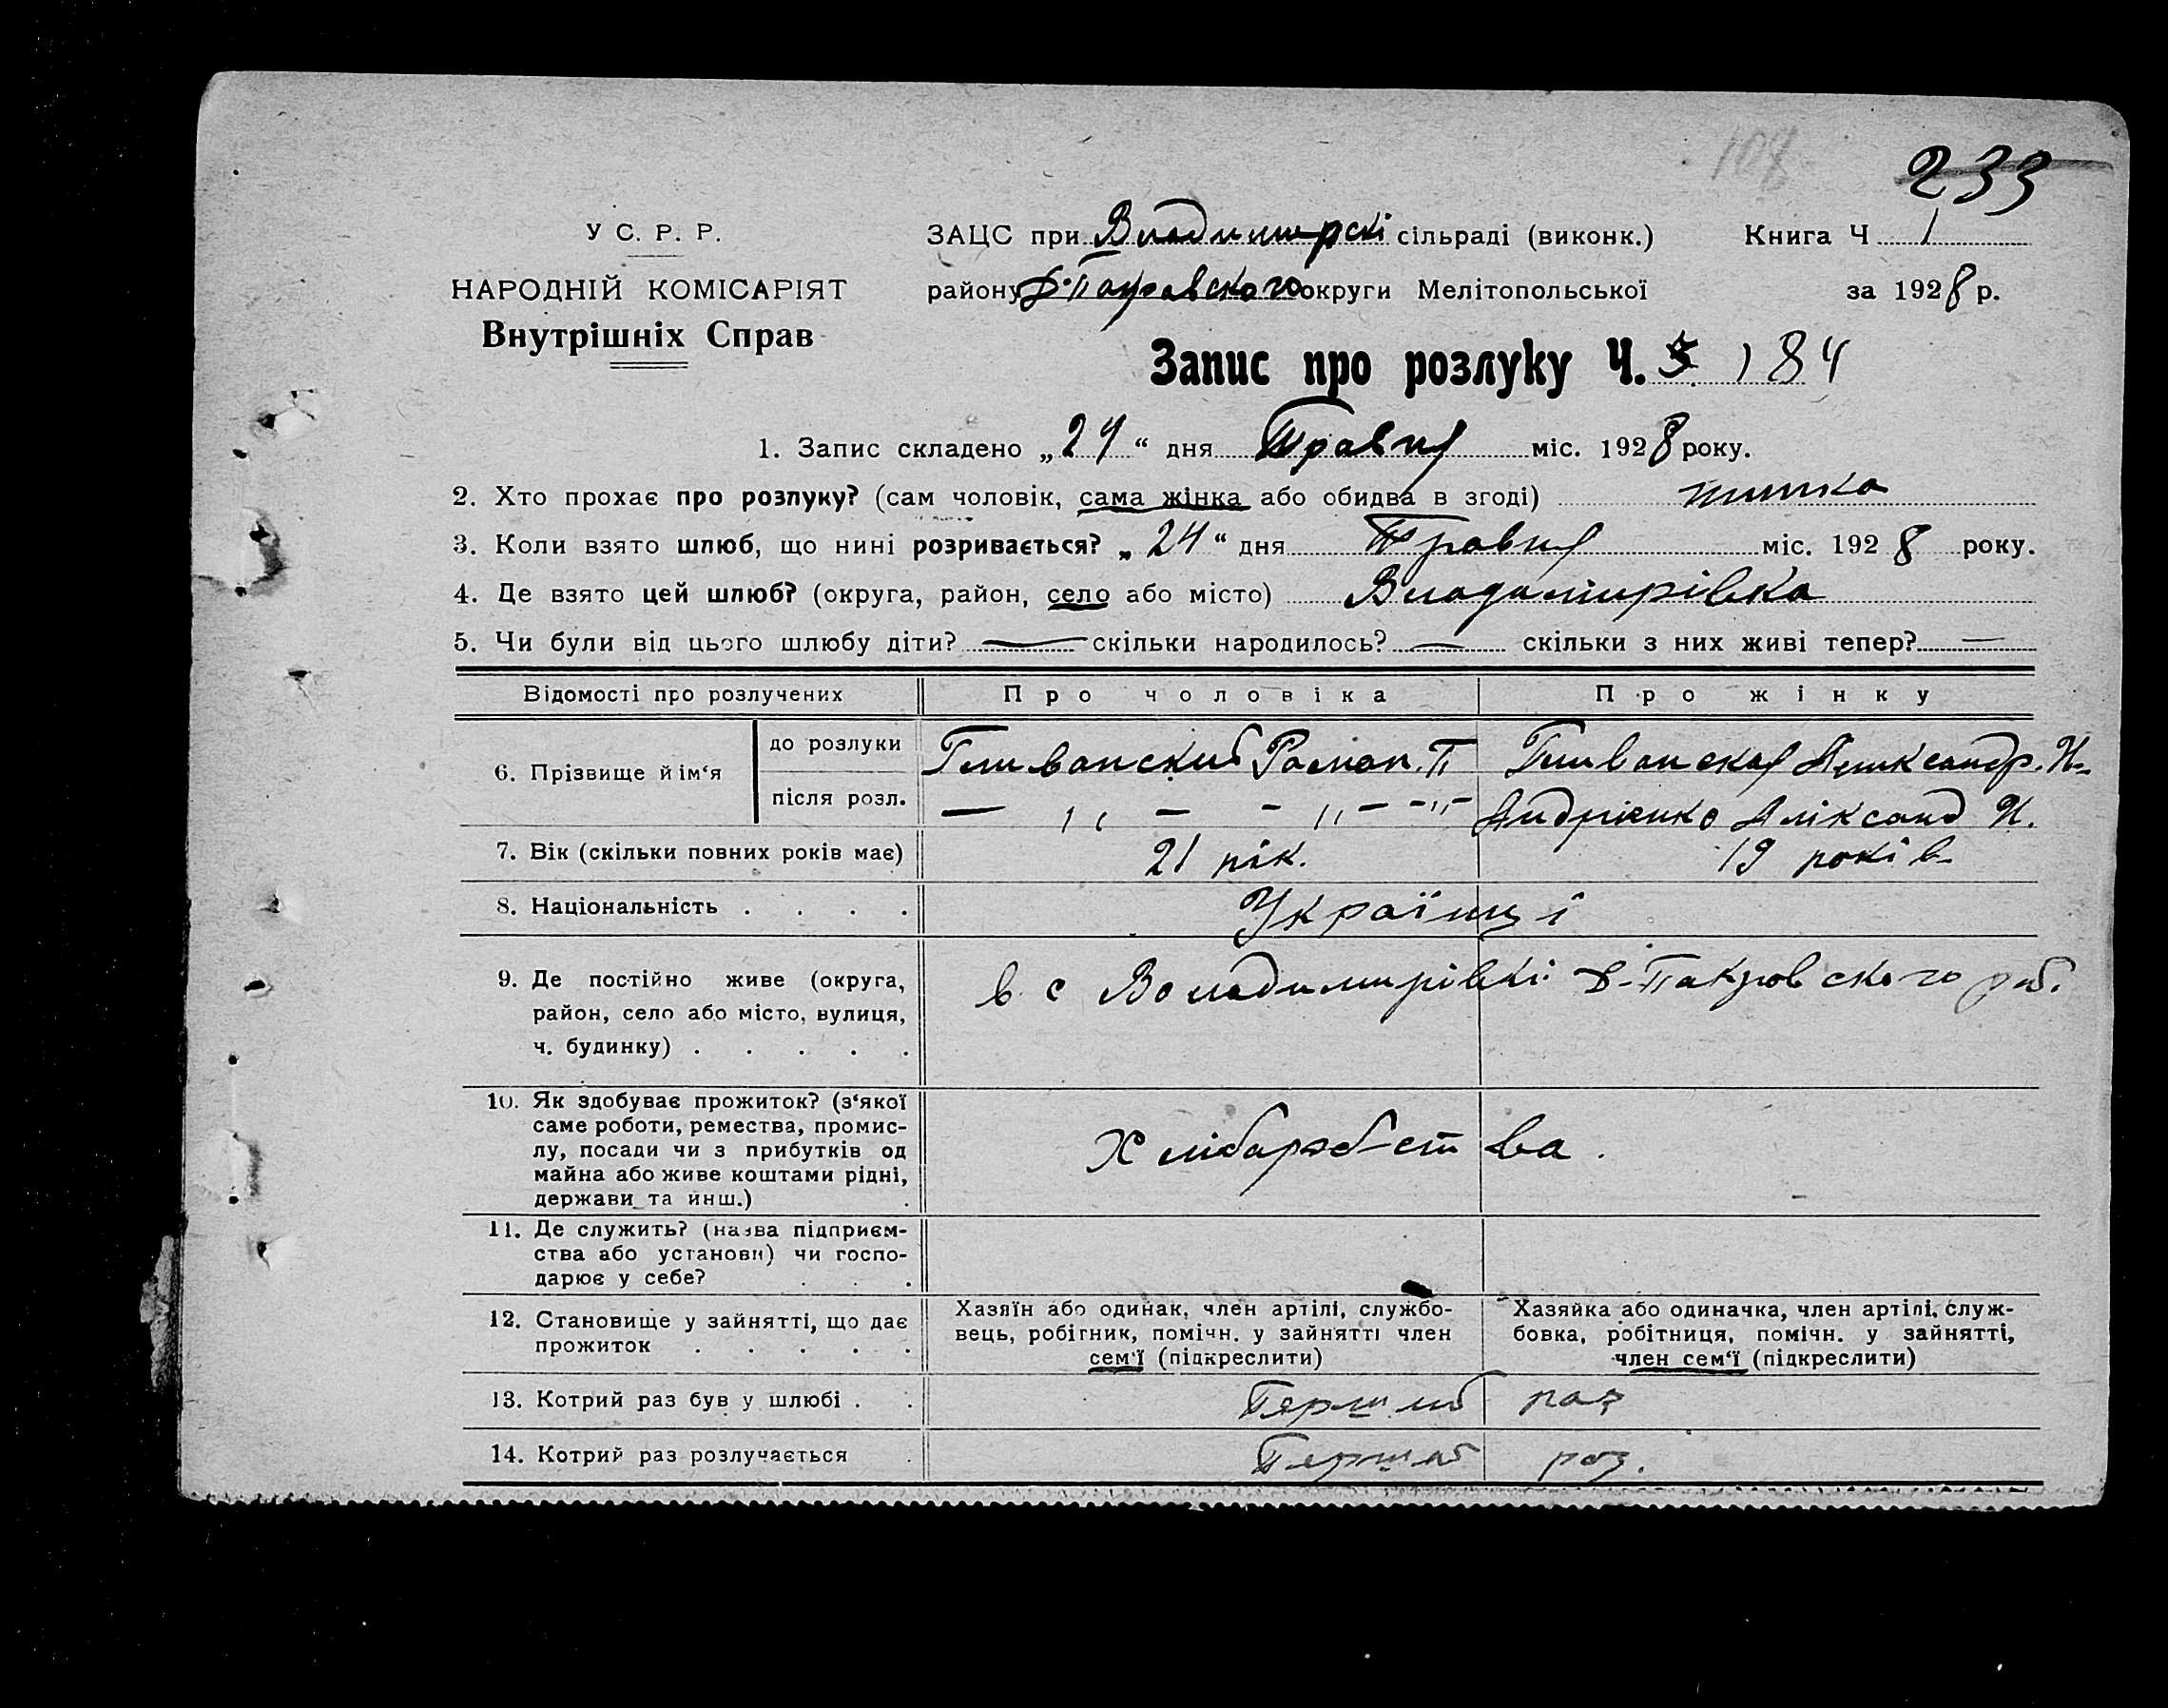 108
233
У С. Р. Р.
НАРОДНІЙ КОМІСАРІЯТ
Внутрішніх Справ
ЗАЦС при сільраді (виконк.) Книга Ч 1
району округи Мелітопольської за 1928 р.
Запис про розлуку Ч. 184
1. Запис складено „24“ дня Травня міс. 1928 року.
2. Хто прохає про розлуку? (сам чоловік, сама жінка або обидва в згоді)
3. Коли взято шлюб, що нині розривається? „24“ дня Травня міс. 1928 року.
4. Де взято цей шлюб? (округа, район, село або місто) Владимирівка
5. Чи були від цього шлюбу діти? — скільки народилось? — скільки з них живі тепер? —
Відомості про розлучених Про чоловіка Про жінку
6. Прізвище й ім‘я
до розлуки Роман. П
після розл. — ,, — - ,, — -,,- Андрієнко Аліксанд И.
7. Вік (скільки повних років має) 21 рік. 19 років
8. Національність . . . . Українці
9. Де постійно живе (округа, район, село або місто, вулиця, ч. будинку) . . . . .
в с Володимирівкі Д-Покровского
10. Як здобуває прожиток? (з‘якої
саме роботи, ремества, промис-
лу, посади чи з прибутків од
майна або живе коштами рідні,
держави та инш.) .
Хліборобства.
11. Де служить? (назва підприєм-
ства або установи) чи госпо-
дарює у себе? . . .
12. Становище у зайнятті, що дає
прожиток . . . . .
Хазяїн або одинак, член артілі, службо-
вець, робітник, помічн. у зайнятті член
сем‘ї (підкреслити)
Хазяйка або одиначка, член артілі, служ-
бовка, робітниця, помічн. у зайнятті,
член сем‘ї (підкреслити)
13. Котрий раз був у шлюбі . . Перший раз
14. Котрий раз розлучається . Перший раз.